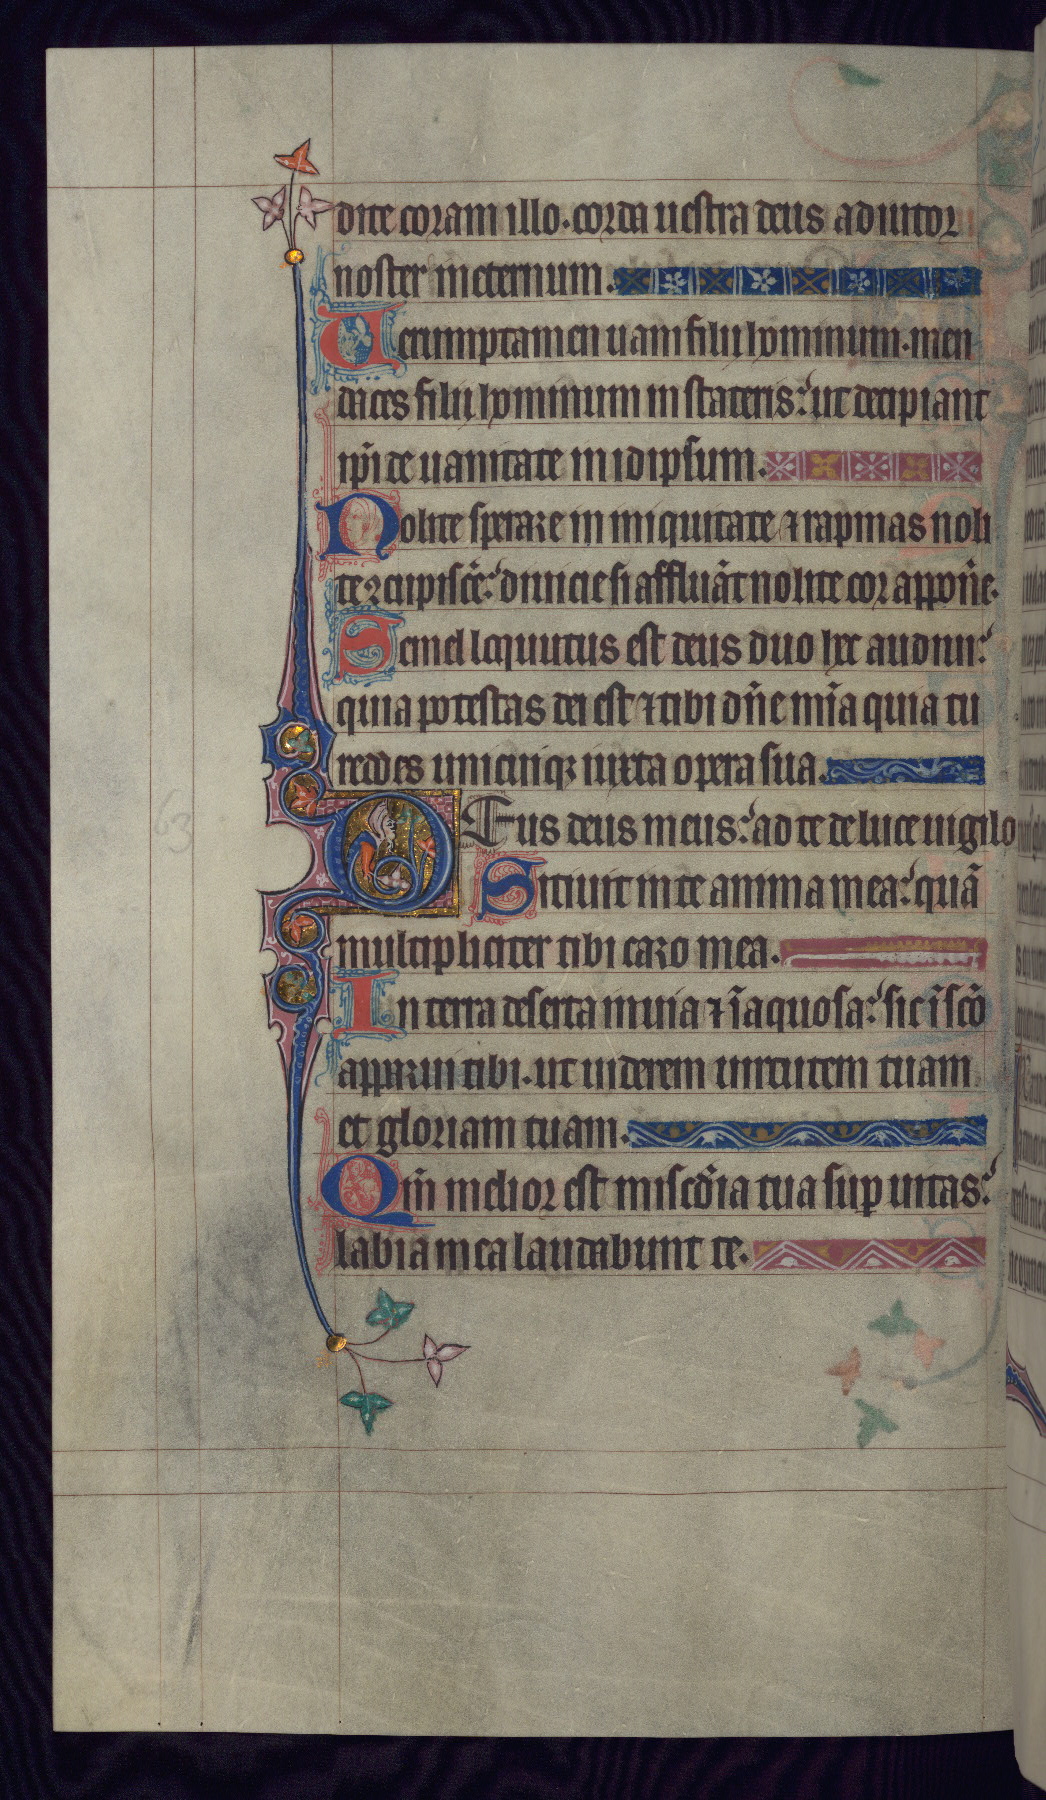 dite coram illo. corda uestra deus adiutor
noster in eternum.
Uerumptamen uani filii hominum. men
daces filii hominum in stateris: ut decipiant
ip̄i de uanitate in idipsum.
Nolite sperare in iniquitate ⁊ rapinas noli
te ꝯcupisc̄e: diuicie si affluāt nolite cor appon̄e.
Semel locutus est deus duo hec audiui:
quia potestas dei est ⁊ tibi dn̄e mīa quia tu
reddes unicuiqꝫ iuxta opera sua.
DEus deus meus: ad te de luce uigilo
Sitiuit in te anima mea: quā
multipliciter tibi caro mea.
In terra deserta inuia ⁊ īaquosa: sic ī sc̄o
apparui tibi. ut uiderem uirtutem tuam
et gloriam tuam.
Qm̄ melior est misc̄dia tua suꝑ uitas:
labia mea laudabunt te.
63